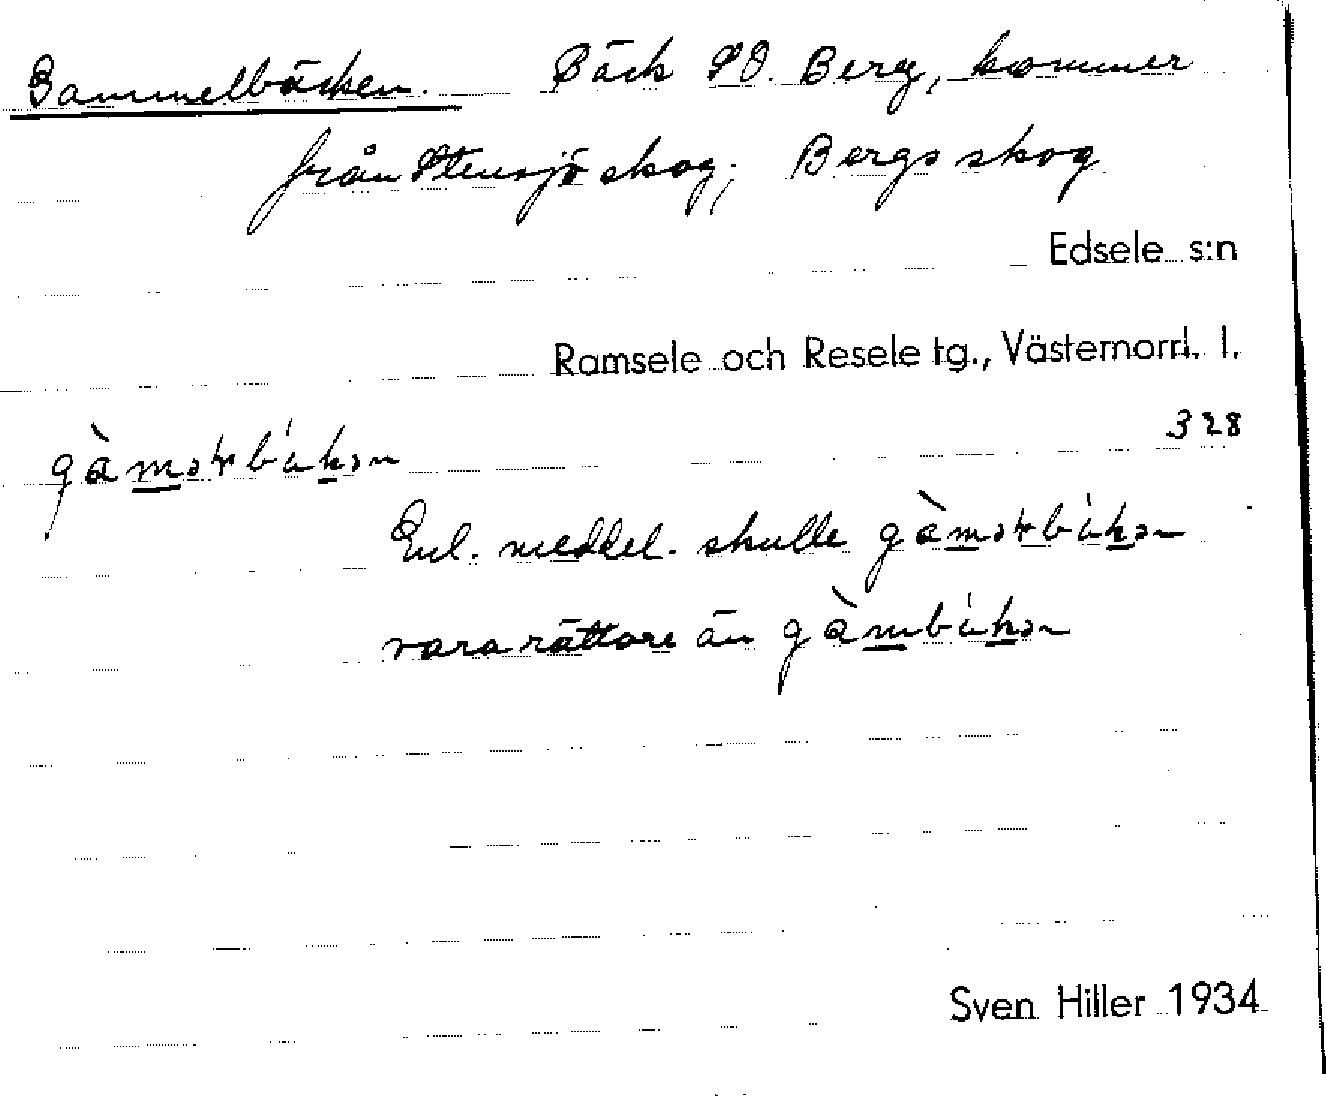 Gammelbäcken. Bäck SO. Berg, kommer
från Stensjö skog; Bergs skog
Edsele s:n
Ramsele och Resele tg., Västernorrl. l.
328
Enl. meddel. skulle
vara rättare än
Sven Hiller 1934